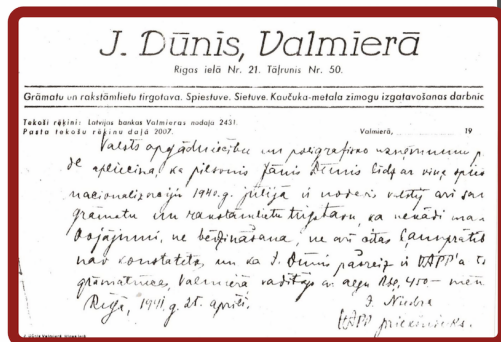 J. Dūnis, Valmierā
Rīgas ielā Nr. 21. Tāļrunis Nr. 50.
Grāmatu un rakstāmlietu tirgotava. Spiestuve. Sietuve. Kaučuka-metala zimogu izgatavošanas darbnīc
Tekoši rēķini: Latvijas bankas Valmieras nodaļā 2431.
Pasta tekošu rēķinu daļā 2007. Valmierā, 19
Valsts apgādniecību un poligrafisko uzņēmumu p
de apliecina, ka pilsonis Jānis Dūnis līdz ar viņa spies
nacionalizāciju 1940.g. jūlijā ir nodevis valstij arī sav
grāmatu un rakstāmlietu tirgotavu, ka nekādi man
bojājumi, ne bēdzināšana, ne arī citas ļaunprātīb
nav konstatēta, un ka J. Dūnis pašreiz ir VAPP'a
grāmatnīcas, Valmierā vadītājs ar algu Rbļ. 450.— mēn
Rīgā, 1941.g. 25. aprīlī.
VAPP priekšnieks.